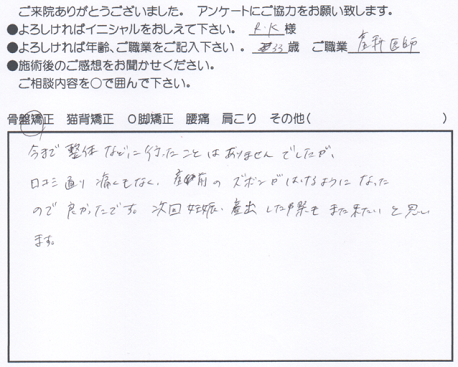 ご来院ありがとうございました。 アンケートにご協力をお願い致します。
●よろしければイニシャルをおしえて下さい。 R.K 様
●よろしければ年齢、ご職業をご記入下さい。 33歳 ご職業 産科医師
●施術後のご感想をお聞かせください。
ご相談内容を○で囲んで下さい。
骨盤矯正 猫背矯正 O脚矯正 腰痛 肩こり その他( )
今まで整体などに行ったことはありませんでしたが、
口コミ通り痛くもなく、産前のズボンがはけるようになった
ので良かったです。次回妊娠、産出した際もまた来たいと思い
ます。